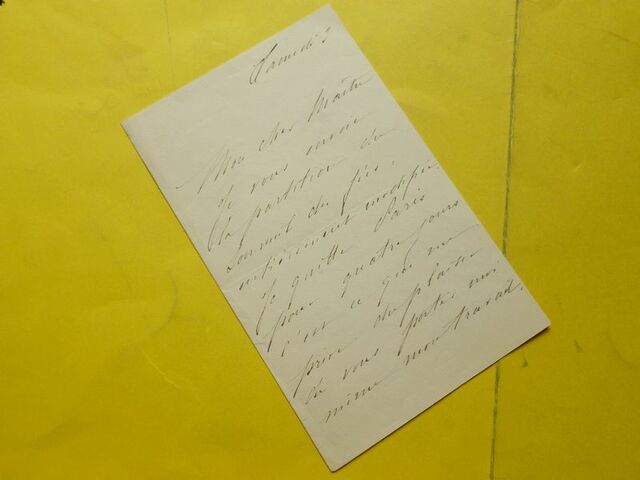 Samedi 3
Mon cher Maître
Je vous envoie
la partition du
Sommeil du fées,
entièrement modifiée.
Je quitte Paris
pour quatre jours
c'est ce qui me
prive du plaisir
de vous porter moi
même mon travail.